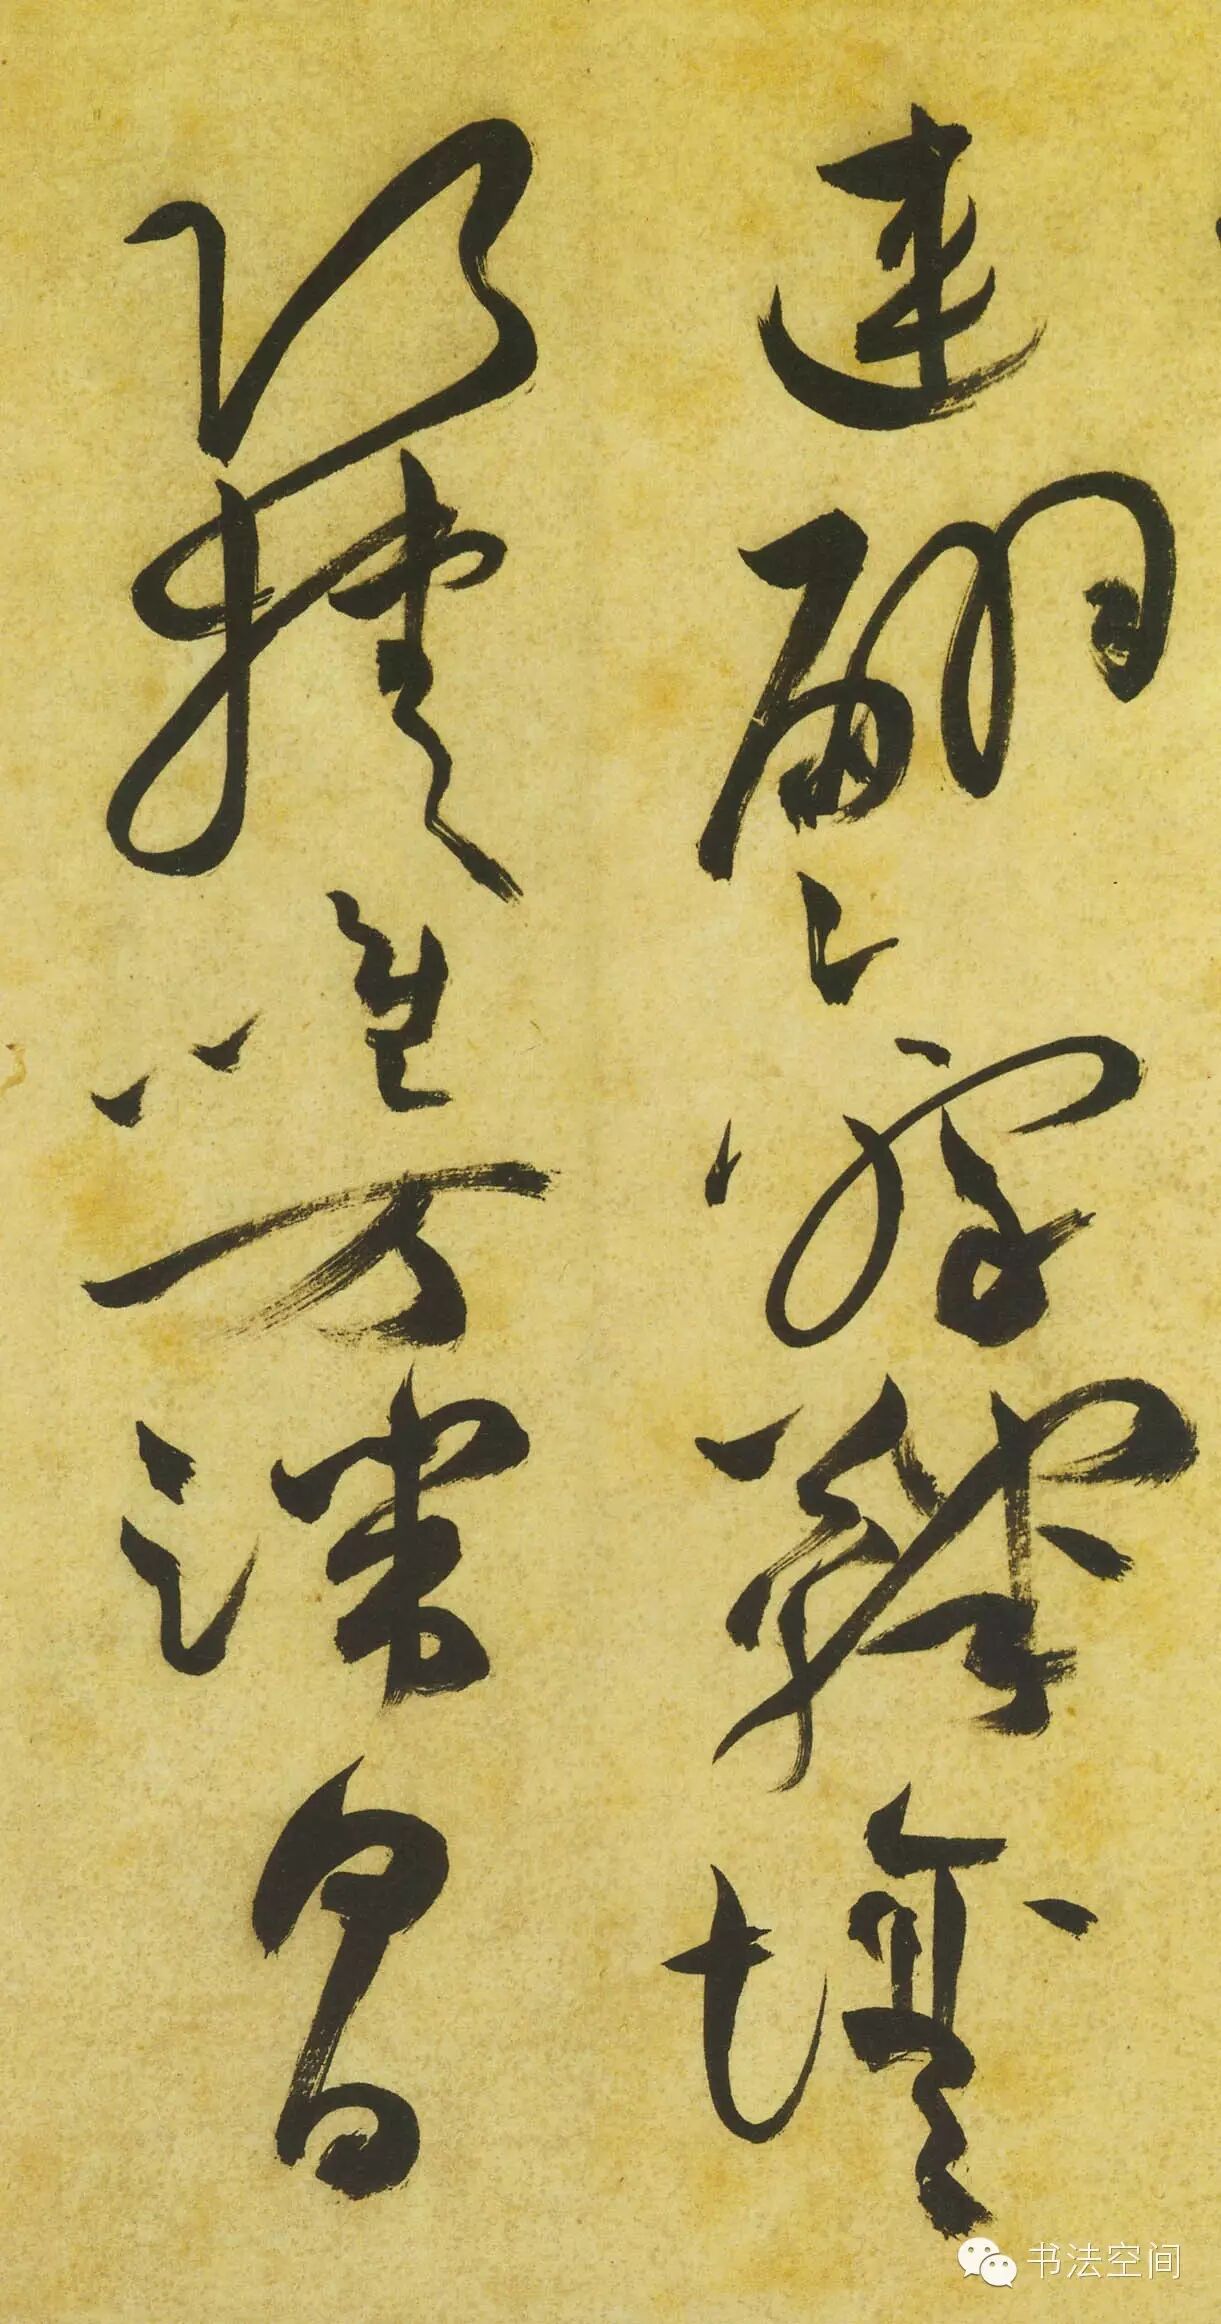 連翩擊鞠壤
巧捷惟万端白日
书法空间